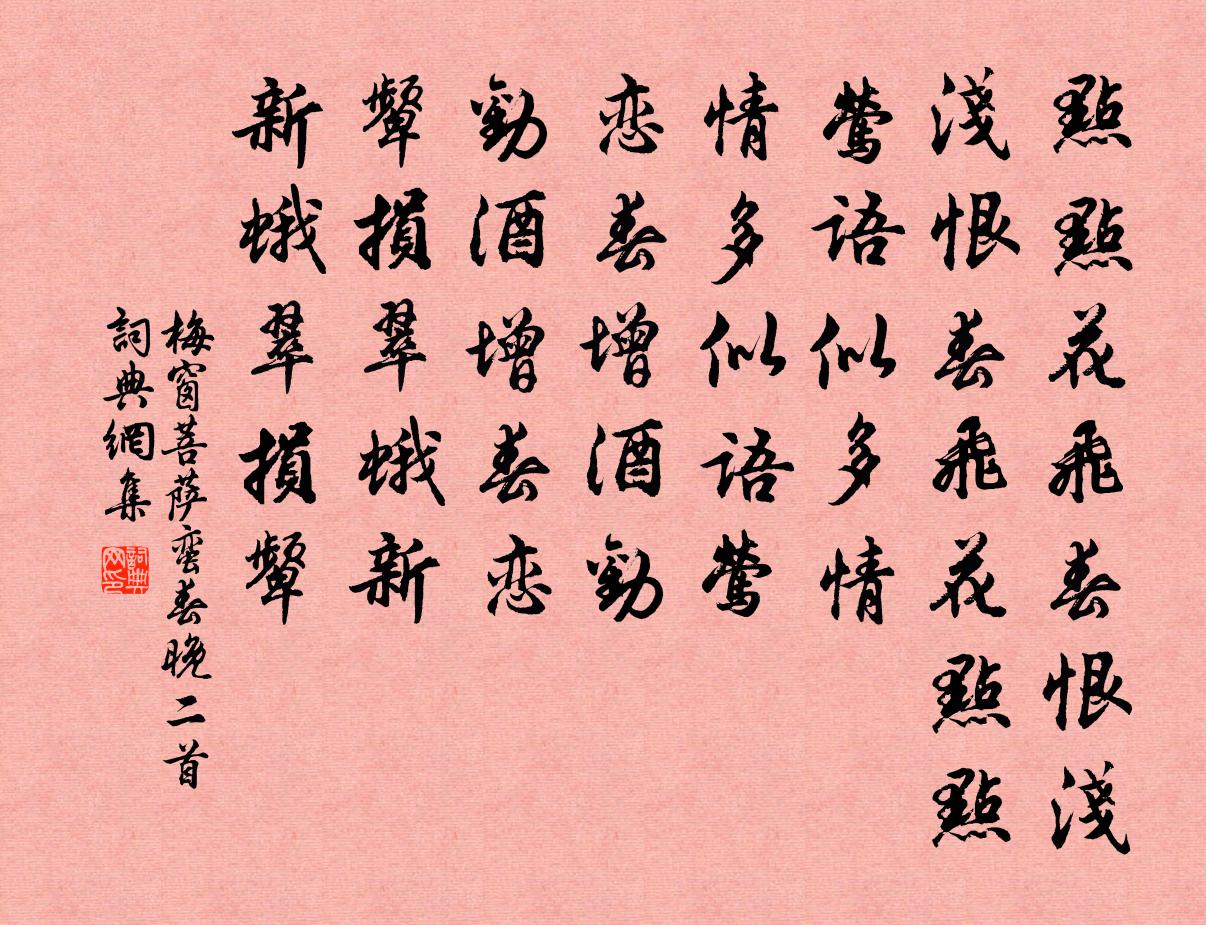 點點花飛春恨淺
淺恨春飛花點點
鶯語似多情
情多似語鶯
戀春增酒勸
勸酒增春戀
顰損翠蛾新
新蛾翠損顰
梅窗菩薩蠻春晚二首
詞典網集
詞典网印